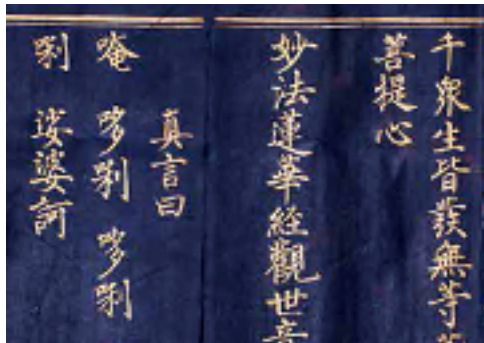 千眾生皆發無等
菩提心
妙法蓮華經觀世音
真言曰
唵 哆唎 哆唎
唎 娑婆訶